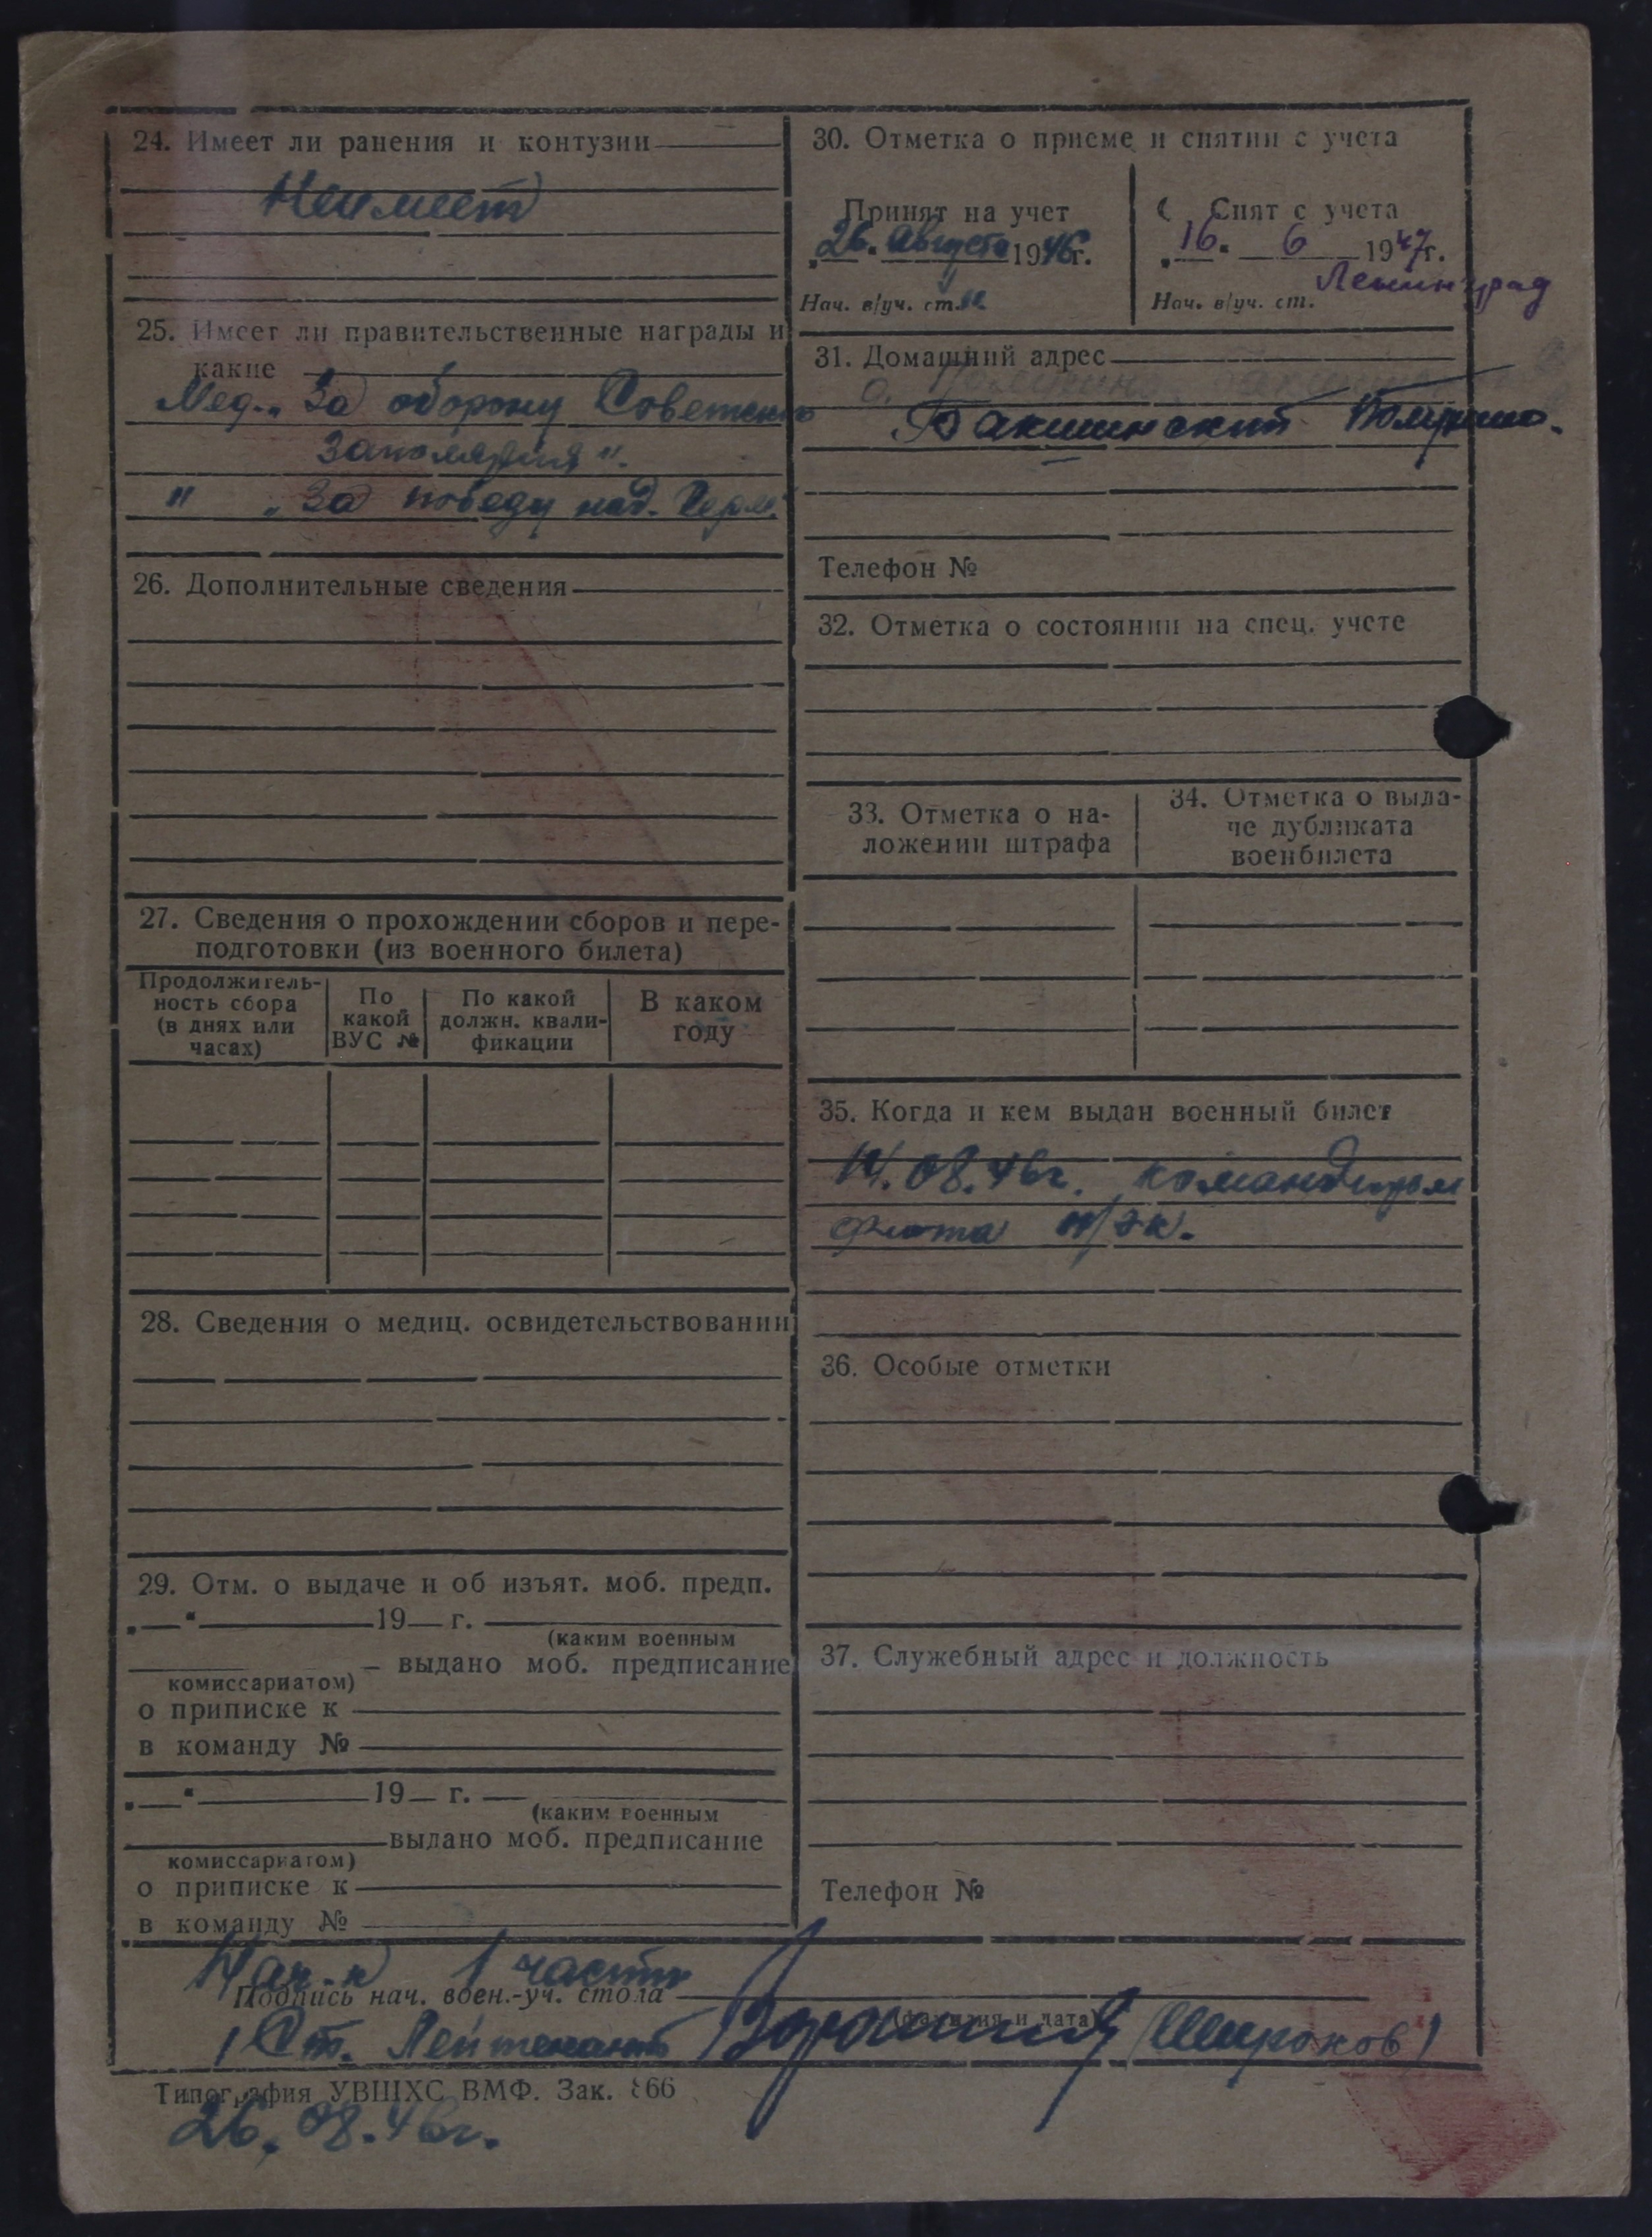 24. Имеет ли ранения и контузии
Неимеет
25. Имеет ли правительственные награды и
какие
Мед. „За оборону Советского
Заполярья".
" „За победу над. Герм."
26. Дополнительные сведения
27. Сведения о прохождении сборов и пере-
подготовки (из военного билета)
Продолжитель-
ность сбора
(в днях или
часах)
По
какой
ВУС №
По какой
должн. квали-
фикации
В каком
году
28. Сведения о медиц. освидетельствовании
29. Отм. о выдаче и об изъят. моб. предп.
„ " 19 г.
(каким военным
выдано моб. предписание
комиссариатом)
о приписке к
в команду №
„ " 19 г.
(каким военным
выдано моб. предписание
комиссариатом)
о приписке к
в команду №
30. Отметка о приеме и снятии с учета
Принят на учет
„26" августа 1946г.
Нач. в/уч. ст.
Снят с учета
„16" 6 1947г.
Ленинград
Нач. в/уч. ст.
31. Домашний адрес
Телефон №
32. Отметка о состоянии на спец. учете
33. Отметка о на-
ложении штрафа
34. Отметка о выда-
че дубликата
военбилета
35. Когда и кем выдан военный билет
14.08.46г. командиром
флота
36. Особые отметки
37. Служебный адрес и должность
Телефон №
Нач-к 1 части
Подпись нач. воен.-уч. стола
(фамилия и дата)
/Ст. Лейтенант (Широков)
Типография УВШХС ВМФ. Зак. 866
26.08.46г.